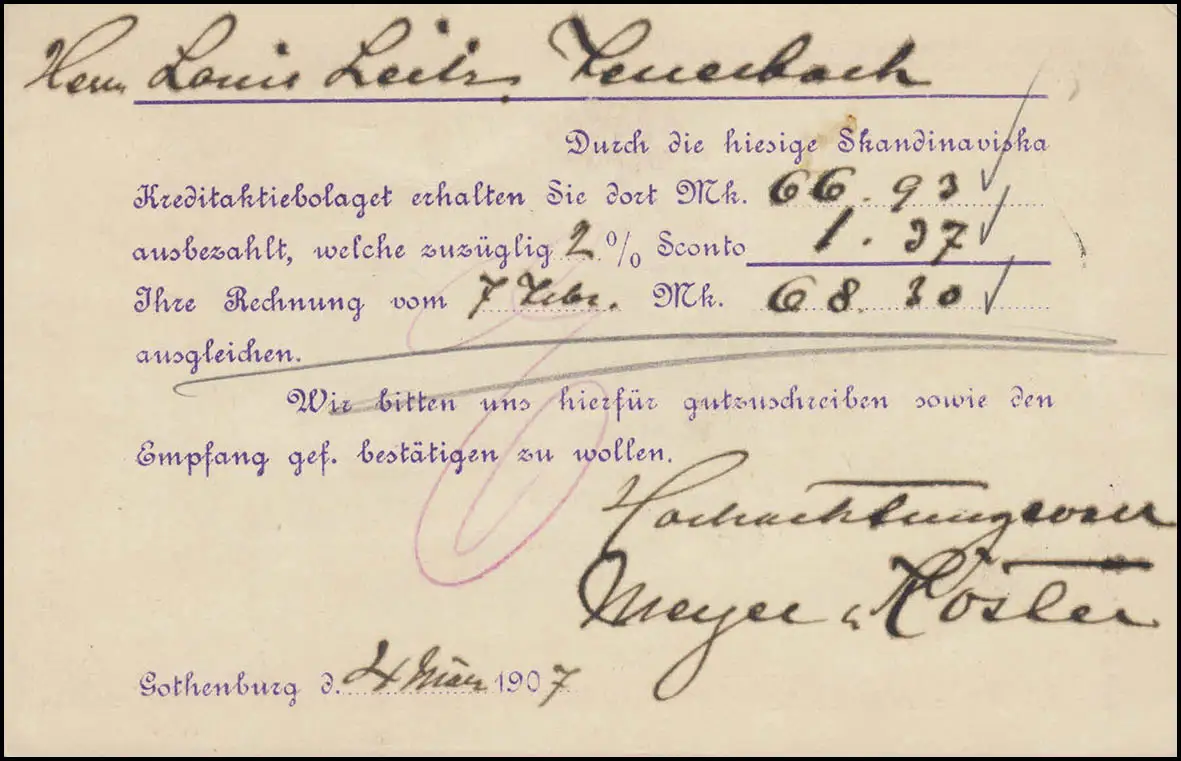 Herrn Louis Leitz, Feuerbach
Durch die hiesige Skandinaviska
Kreditaktiebolaget erhalten Sie dort Mk. 66.93
ausbezahlt, welche zuzüglig 2 % Sconto 1.37
Ihre Rechnung vom 7 Febr. Mk. 68.30
ausgleichen.
Wir bitten uns hierfür gutzuschreiben sowie den
Empfang gef. bestätigen zu wollen.
Hochachtungsvoll
Meyer & Köster
Gothenburg d. 4 März 1907